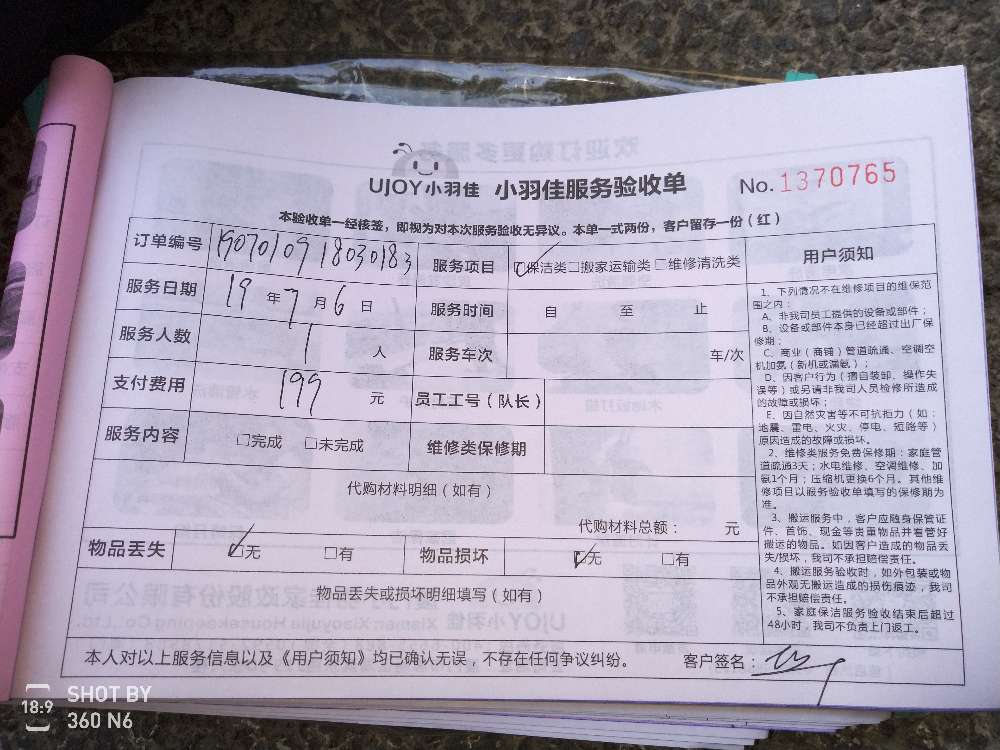 UJOY小羽佳 小羽佳服务验收单 No. 1370765
本验收单一经核签，即视为对本次服务验收无异议。本单一式两份，客户留存一份（红）
订单编号 1907010918030183 服务项目 ☑保洁类□搬家运输类□维修清洗类 用户须知
服务日期 19 年 7 月 6 日 服务时间 自 至 止
服务人数 1 人 服务车次 车/次
支付费用 199 元 员工工号（队长）
服务内容 □完成 □未完成 维修类保修期
代购材料明细（如有）
代购材料总额： 元
物品丢失 ☑无 □有 物品损坏 ☑无 □有
物品丢失或损坏明细填写（如有）
1、下列情况不在维修项目的维保范
围之内：
A、非我司员工提供的设备或部件；
B、设备或部件本身已经超过出厂保
修期；
C、商业（商铺）管道疏通、空调空
机加氨（新机或漏氨）；
D、因客户行为（擅自装卸、操作失
误等）或另请非我司人员检修所造成
的故障或损坏；
E、因自然灾害等不可抗拒力（如：
地震、雷电、火灾、停电、短路等）
原因造成的故障或损坏。
2、维修类服务免费保修期：家庭管
道疏通3天；水电维修、空调维修、加
氨1个月；压缩机更换6个月。其他维
修项目以服务验收单填写的保修期为
准。
3、搬运服务中，客户应随身保管证
件、首饰、现金等贵重物品并看管好
搬运的物品。如因客户造成的物品丢
失/损坏，我司不承担赔偿责任。
4、搬运服务验收时，如外包装或物
品外观无搬运造成的损伤痕迹，我司
不承担赔偿责任。
5、家庭保洁服务验收结束后超过
48小时，我司不负责上门返工。
本人对以上服务信息以及《用户须知》均已确认无误，不存在任何争议纠纷。 客户签名：
SHOT BY
360 N6
18:9